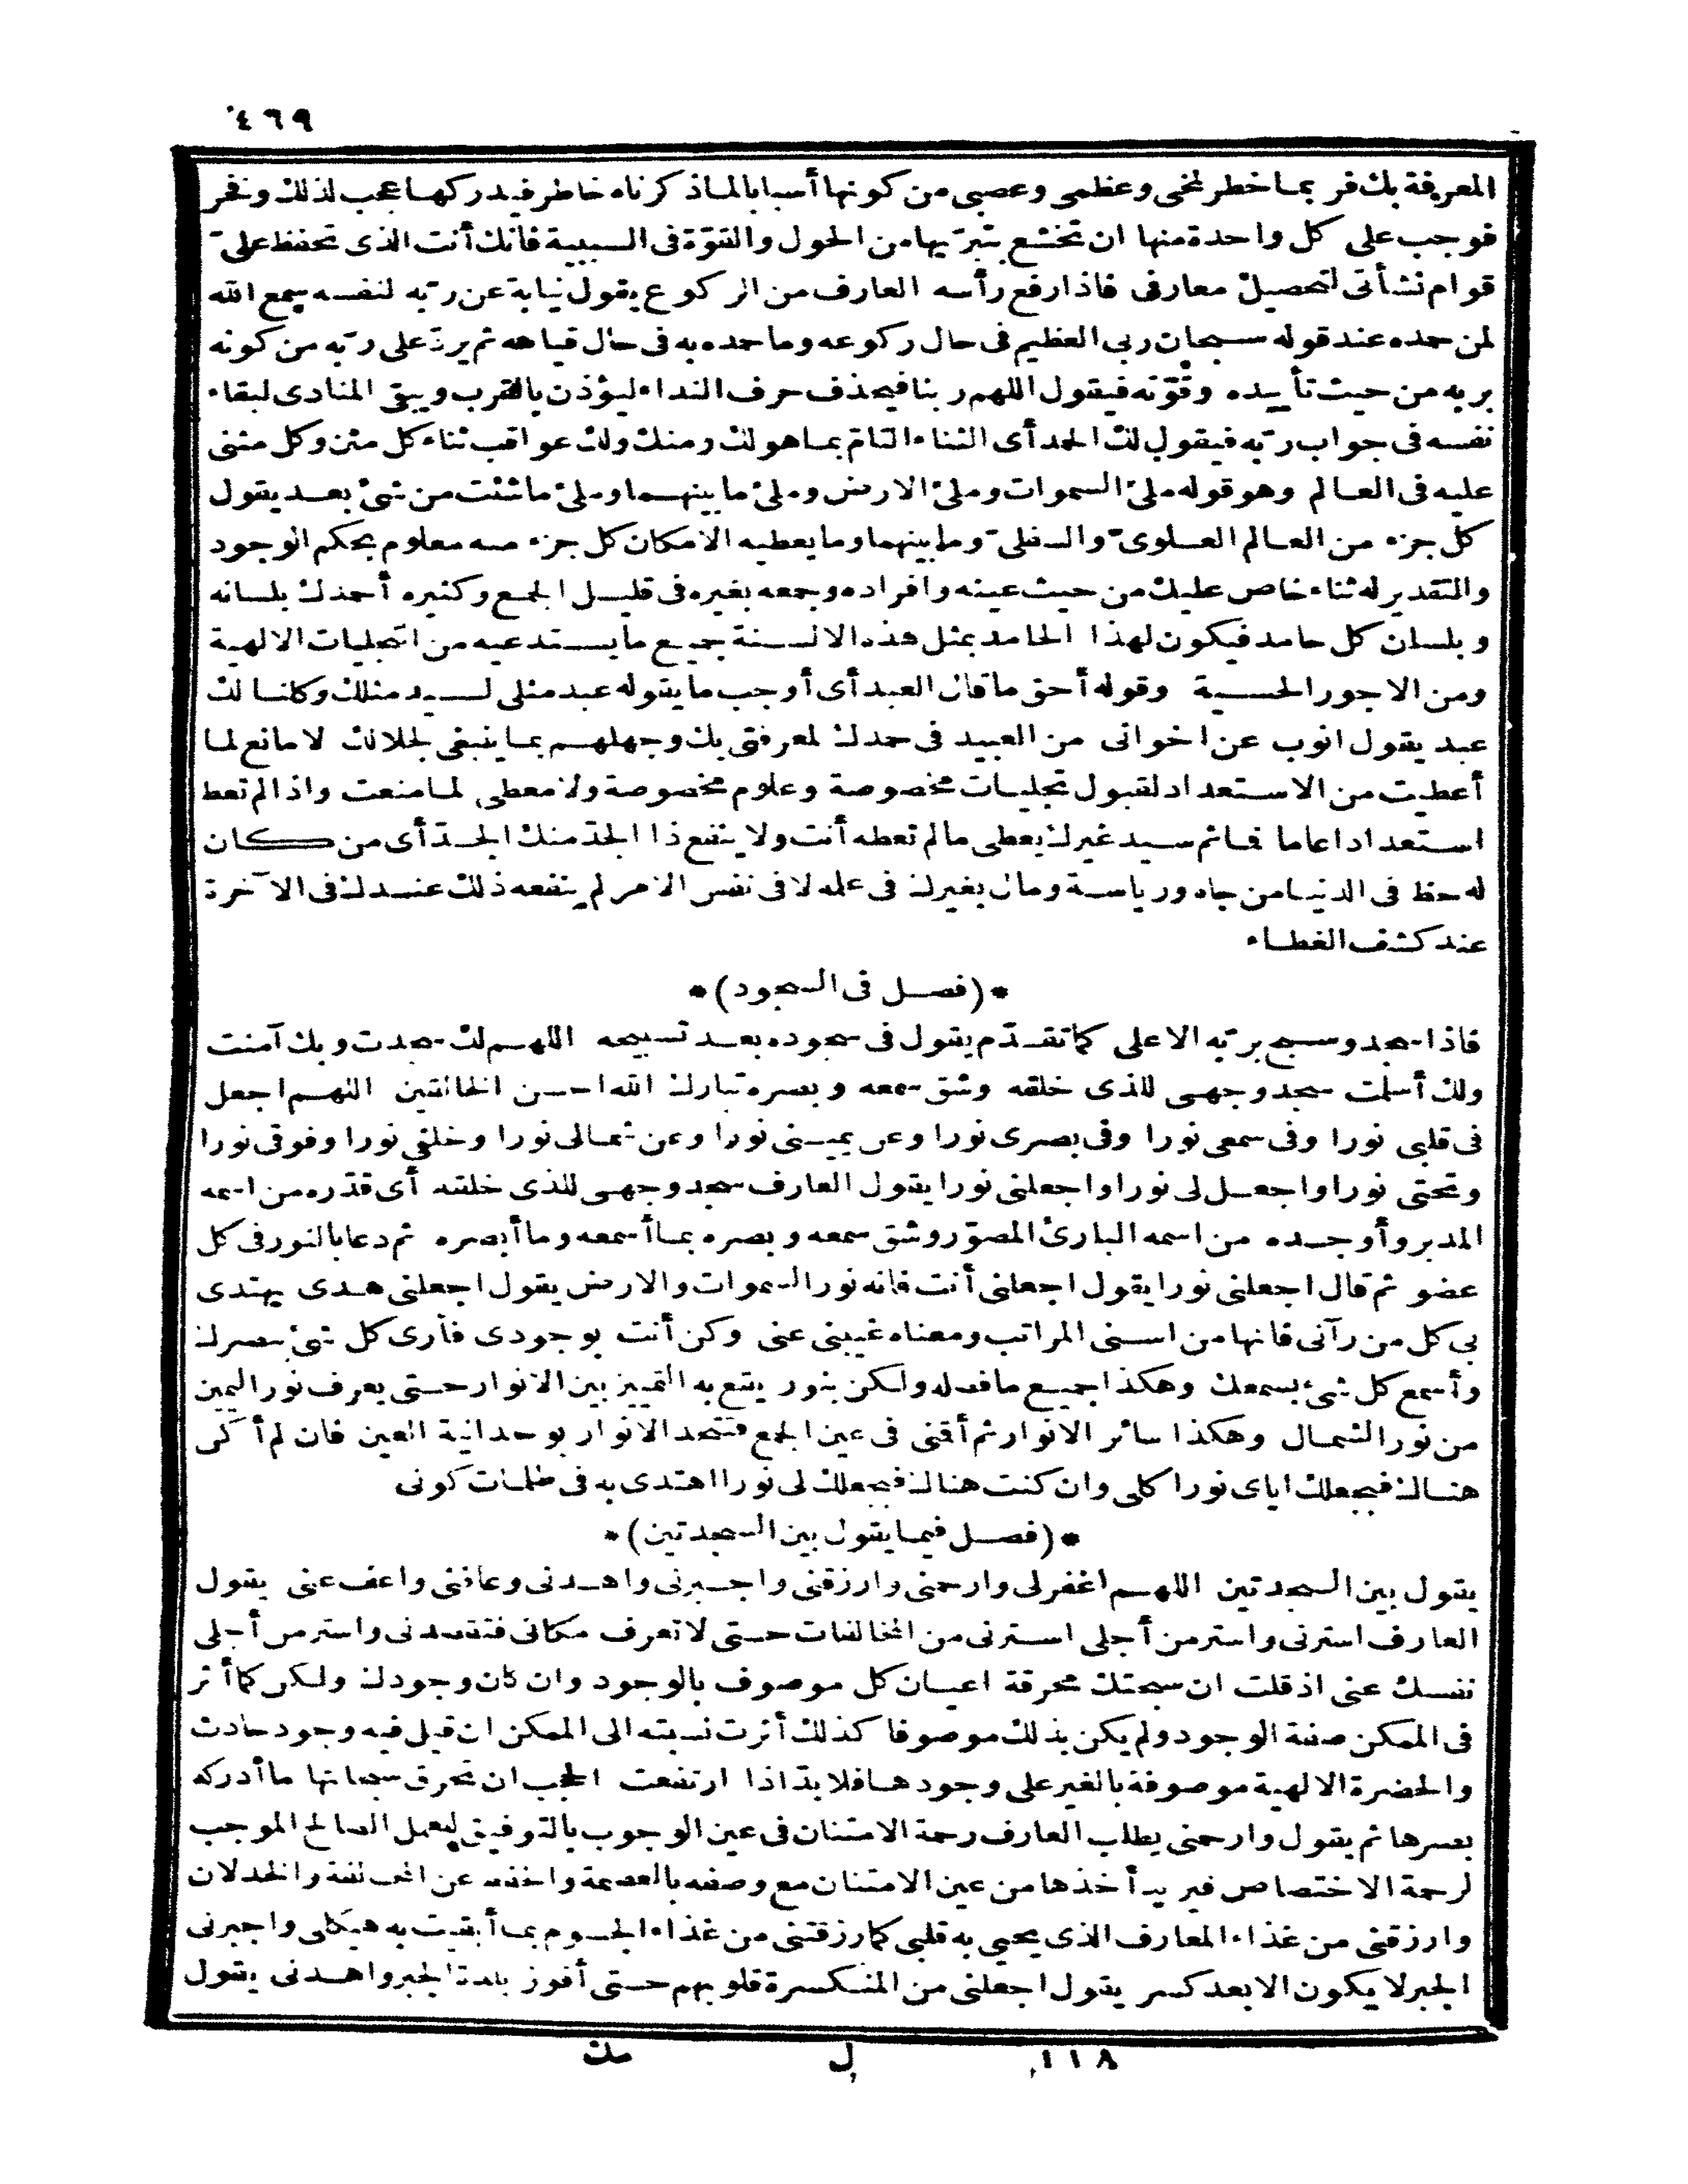 ٤٦٩
المعرفة بك فر بما خطر لمخى وعظمى وعصبى من كونها أسبابا لماذكرناه خاطر فيدركها عجب لذلك ونفر
فوجب على كل واحدة منها ان تخشع بتبرّيها من الحول والقوّة فى السببية فانك أنت الذى تحفظ علىّ
قوام نشأتى لتحصيل معارفى فاذا رفع رأسه العارف من الركوع يقول نيابة عن ربّه لنفسه سمع الله
لمن حمده عند قوله سبحان ربى العظيم فى حال ركوعه وما حمده به فى حال قيامه ثم يردّ على ربّه من كونه
بربه من حيث تأييده وقوّته فيقول اللهم ربنا فيحذف حرف النداء ليؤذن بالقرب ويبقى المنادى لبقاء
نفسه فى جواب ربّه فيقول لك الحمد أى الثناء التامّ بما هو لك ومنك ولك عواقب ثناء كل مثن وكل مثنى
عليه فى العالم وهو قوله ملئ السموات وملئ الارض وملئ ما بينهما وملئ ما شئت من شئ بعد يقول
كل جزء من العالم العلوىّ والسفلىّ وما بينهما وما يعطيه الامكان كل جزء منه معلوم بحكم الوجود
والتقدير له ثناء خاص عليك من حيث عينه وافراده وجمعه بغيره فى قليل الجمع وكثيره أحمدك بلسانه
وبلسان كل حامد فيكون لهذا الحامد بمثل هذه الالسنة جميع ما يستدعيه من التجليات الالهية
ومن الاجور الحسية وقوله أحق ما قال العبد أى أوجب ما يقوله عبد مثلى لسيد مثلك وكلنا لك
عبد يقول انوب عن اخوانى من العبيد فى حمدك لمعرفتى بك وجهلهم بما ينبغى لجلالك لا مانع لما
أعطيت من الاستعداد لقبول تجليات مخصوصة وعلوم مخصوصة ولا معطى لما منعت واذا لم تعط
استعدادا عاما فما ثم سيد غيرك يعطى ما لم تعطه أنت ولا ينفع ذا الجدّ منك الجدّ أى من كان
له حظ فى الدنيا من جاه ورياسة ومال بغيرك فى علمه لا فى نفس الامر لم ينفعه ذلك عندك فى الآخرة
عند كشف الغطاء
*(فصل فى السجود)*
فاذا سجد وسبح بربّه الاعلى كما تقدّم يقول فى سجوده بعد تسبيحه اللهم لك سجدت وبك آمنت
ولك أسلمت سجد وجهى للذى خلقه وشق سمعه وبصره تبارك الله احسن الخالقين اللهم اجعل
فى قلبى نورا وفى سمعى نورا وفى بصرى نورا وعن يمينى نورا وعن شمالى نورا وخلفى نورا وفوقى نورا
وتحتى نورا واجعل لى نورا واجعلنى نورا يقول العارف سجد وجهى للذى خلقه أى قدّره من اسمه
المدبر وأوجده من اسمه البارئ المصوّر وشق سمعه وبصره بما أسمعه وما أبصره ثم دعا بالنور فى كل
عضو ثم قال اجعلنى نورا يقول اجعلنى أنت فانه نور السموات والارض يقول اجعلنى هدى يهتدى
بى كل من رآنى فانها من اسنى المراتب ومعناه غيبنى عنى وكن أنت بوجودى فأرى كل شئ ببصرك
وأسمع كل شئ بسمعك وهكذا جميع ما فصله ولكن بنور يقع به التمييز بين الانوار حتى يعرف نور اليمين
من نور الشمال وهكذا سائر الانوار ثم أقنى فى عين الجمع فتتحد الانوار بوحدانية العين فان لم أكن
هنالك فبجعلك اياى نورا كلى وان كنت هنالك فبجعلك لى نورا اهتدى به فى ظلمات كونى
*(فصل فيما يقول بين السجدتين)*
يقول بين السجدتين اللهم اغفر لى وارحمنى وارزقنى واجبرنى واهدنى وعافنى واعف عنى يقول
العارف استرنى واستر من أجلى استرنى من المخالفات حتى لا تعرف مكانى فتقصدنى واستر من أجلى
نفسك عنى اذ قلت ان سبحتك محرقة اعيان كل موصوف بالوجود وان كان وجودك ولكن كما أثر
فى الممكن صفة الوجود ولم يكن بذلك موصوفا كذلك أثرت نسبته الى الممكن ان قيل فيه وجود حادث
والحضرة الالهية موصوفة بالغير على وجودها فلا بدّ اذا ارتفعت الحجب ان تحرق سبحاتها ما أدركه
بصرها ثم يقول وارحمنى يطلب العارف رحمة الامتنان فى عين الوجوب بالتوفيق ليعمل الصالح الموجب
لرحمة الاختصاص فيريد أخذها من عين الامتنان مع وصفه بالعصمة والحفظ عن المخالفة والخذلان
وارزقنى من غذاء المعارف الذى يحيى به قلبى كما رزقتنى من غذاء الجسوم بما أبقيت به هيكلى واجبرنى
الجبر لا يكون الا بعد كسر يقول اجعلنى من المنكسرة قلوبهم حتى أفوز بلذة الجبر واهدنى يقول
١١٨ ل مك